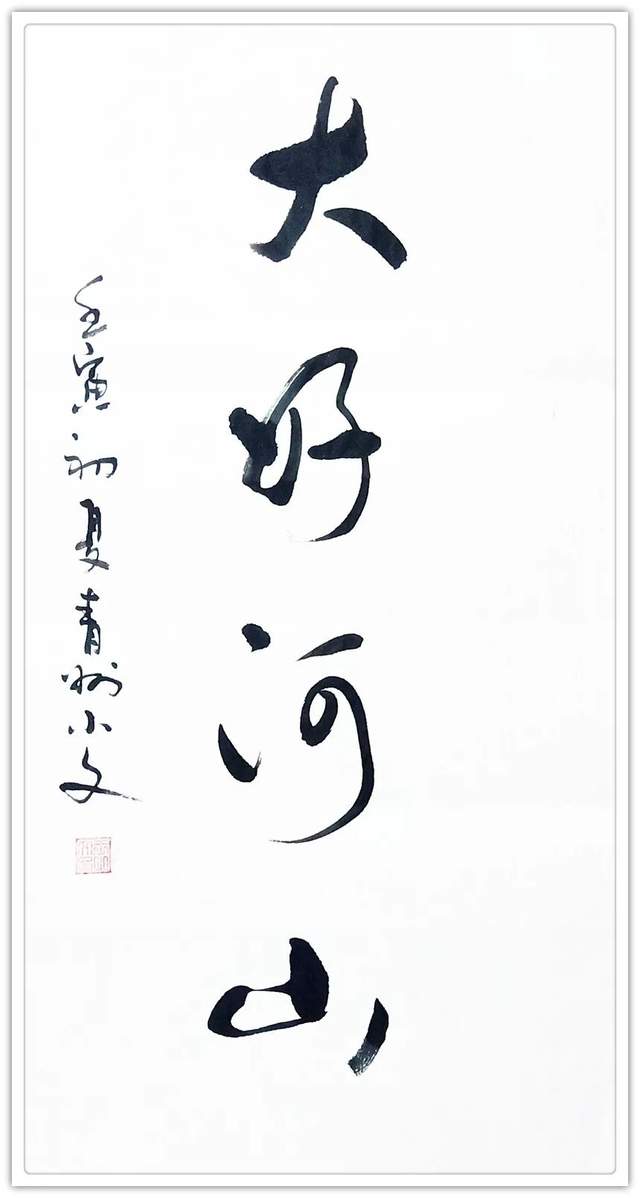 大好河山
壬寅初夏青州小文